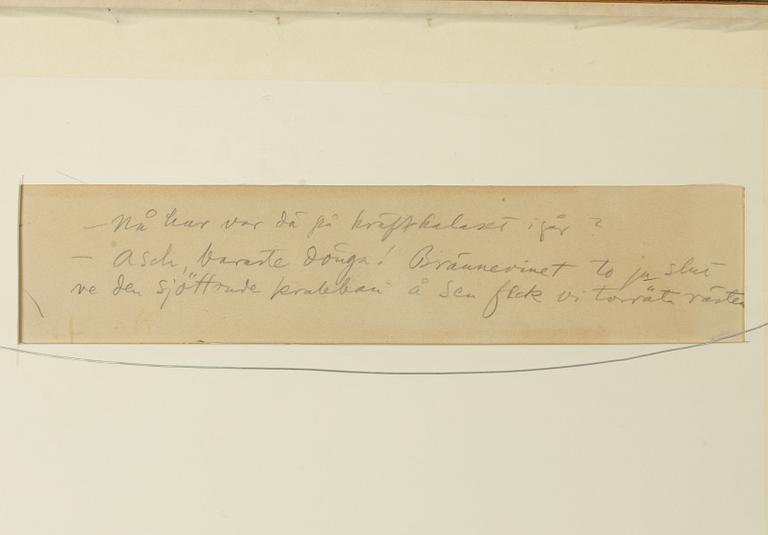 – Nå hur var dä på kräftkalaset igår?
– Asch, baraste dönga! Brännevinet to ju slut
ve den sjöttonde krabban å sen fick vi torräta rästen